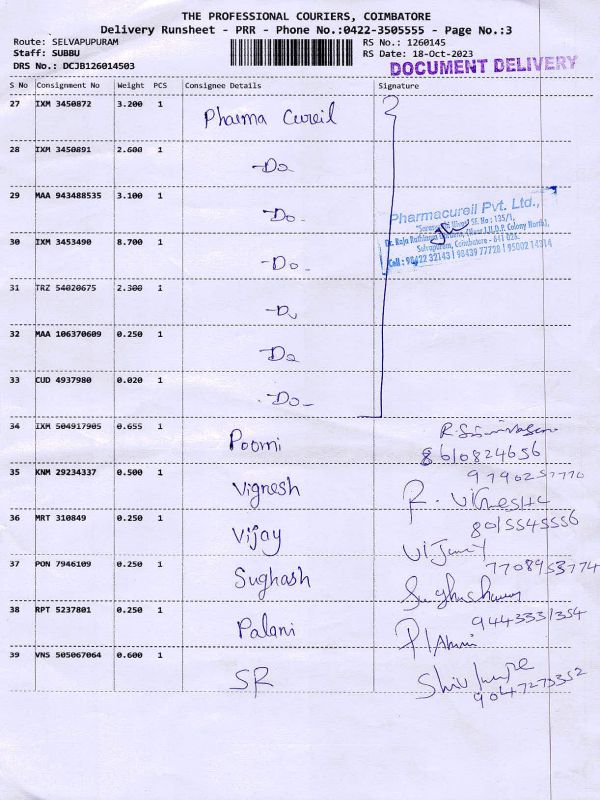 THE PROFESSIONAL COURIERS, COIMBATORE
Delivery Runsheet - PRR - Phone No.:0422-3505555 - Page No.:3
Route: SELVAPUPURAM RS No.: 1260145
Staff: SUBBU RS Date: 18-Oct-2023
DRS No.: DCJB126014503 DOCUMENT DELIVERY
S No Consignment No Weight PCS Consignee Details Signature
27 IXM 3450872 3.200 1 Pharma Cureil
28 IXM 3450891 2.600 1 -Do
29 MAA 943488535 3.100 1 -Do-
Pharmacureil Pvt. Ltd.,
SF. No: 135/1,
Dr. Raja Rathinam (Near I.U.D.P. Colony North),
Selvapuram, Coimbatore - 641 026.
Cell: 98422 32143 | 98439 77728 | 95002 14314
30 IXM 3453490 8.700 1 -Do-
31 TRZ 54020675 2.300 1 -Do
32 MAA 106370609 0.250 1 -Do
33 CUD 4937980 0.020 1 -Do-
34 IXM 504917905 0.655 1 Poomi R. Srinivasan
8610824656
35 KNM 29234337 0.500 1 Vignesh R. VIGNESH
9790257770
36 MRT 310849 0.250 1 Vijay Vijay
8015545556
37 PON 7946109 0.250 1 Sughash
7708953774
38 RPT 5237801 0.250 1 Palani
9443331354
39 VNS 505067064 0.600 1 SR
9047273352